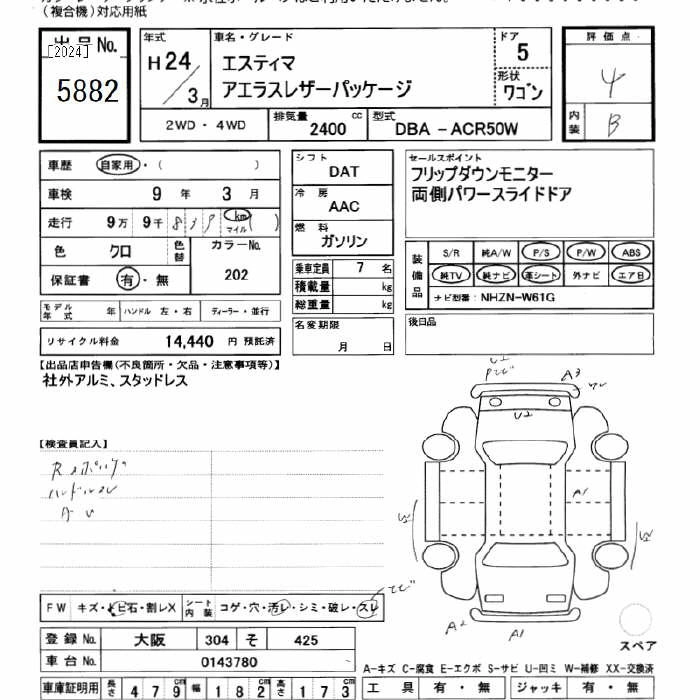 （複合機）対応用紙
出品No. [2024] 5882
年式 H24/3月
車名・グレード エスティマ
アエラスレザーパッケージ
ドア 5
形状 ワゴン
評価点 4
内装 B
2WD・4WD 排気量 2400cc 型式 DBA－ACR50W
車歴 自家用・（ ）
車検 9年 3月
走行 9万 9千 km マイル
色 クロ 色替 カラーNo. 202
保証書 有・無
モデル年式 年 ハンドル 左・右 ディーラー・並行
リサイクル料金 14,440 円 預託済
シフト DAT
冷房 AAC
燃料 ガソリン
乗車定員 7 名
積載量 kg
総重量 kg
名変期限 月 日
セールスポイント
フリップダウンモニター
両側パワースライドドア
装備品 S/R 純A/W P/S P/W ABS
純TV 純ナビ 革シート 外ナビ エアB
ナビ型番：NHZN-W61G
後日品
【出品店申告欄(不良箇所・欠品・注意事項等)】
社外アルミ、スタッドレス
【検査員記入】
A3
U2
A1
A2 A1
FW キズ・トビ石・割レX シート内装 コゲ・穴・汚レ・シミ・破レ・スレ
登録No. 大阪 304 そ 425
車台No. 0143780
スペア
A-キズ C-腐食 E-エクボ S-サビ U-凹ミ W-補修 XX-交換済
車庫証明用 長さ 479cm 幅 182cm 高さ 173cm
工具 有・無 ジャッキ 有・無